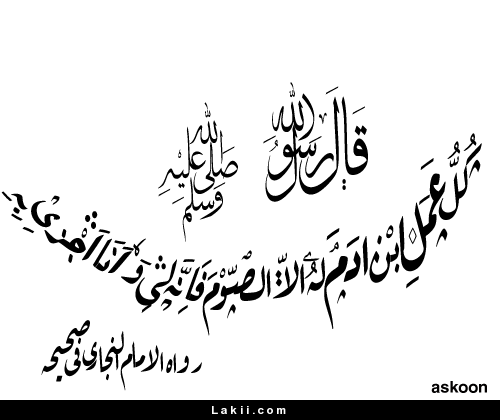 قَالَ رَسُولُ اللهِ
صَلَّى اللهُ عَلَيْهِ وَسَلَّمَ
كُلُّ عَمَلِ ابْنِ ادَمَ لَهُ الاَّ الصَّوْمَ فَاِنَّهُ لِي وَاَنَا اَجْزِي بِهِ
رواه الامام البخاري في صحيحه
askoon
Lakii.com